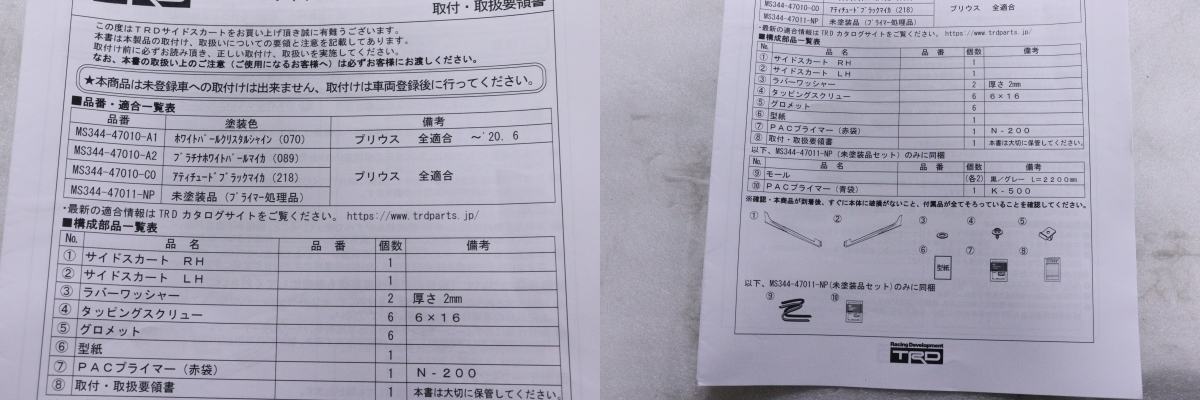 取付・取扱要領書
この度はTRDサイドスカートをお買い上げ頂き誠に有難うございます。
本書は本製品の取付け、取扱いについての要領と注意を記載してあります。
取付け前に必ずお読み頂き、正しい取付け、取扱いを実施してください。
なお、本書の取扱い上のご注意（ご使用になるお客様へ）は必ずお客様にお渡しください。
★本商品は未登録車への取付けは出来ません、取付けは車両登録後に行ってください。
■品番・適合一覧表
品番 塗装色 備考
MS344-47010-A1 ホワイトパールクリスタルシャイン（070） プリウス 全適合 ～'20. 6
MS344-47010-A2 プラチナホワイトパールマイカ（089）
MS344-47010-C0 アティチュードブラックマイカ（218） プリウス 全適合
MS344-47011-NP 未塗装品（プライマー処理品）
・最新の適合情報はTRDカタログサイトをご覧ください。https://www.trdparts.jp/
■構成部品一覧表
No. 品 名 品 番 個数 備考
① サイドスカート RH 1
② サイドスカート LH 1
③ ラバーワッシャー 2 厚さ 2mm
④ タッピングスクリュー 6 6×16
⑤ グロメット 6
⑥ 型紙 1
⑦ PACプライマー（赤袋） 1 N-200
⑧ 取付・取扱要領書 1 本書は大切に保管してください。
MS344-47010-C0 アティチュードブラックマイカ（218） プリウス 全適合
MS344-47011-NP 未塗装品（プライマー処理品）
・最新の適合情報はTRDカタログサイトをご覧ください。https://www.trdparts.jp/
■構成部品一覧表
No. 品 名 品 番 個数 備考
① サイドスカート RH 1
② サイドスカート LH 1
③ ラバーワッシャー 2 厚さ 2mm
④ タッピングスクリュー 6 6×16
⑤ グロメット 6
⑥ 型紙 1
⑦ PACプライマー（赤袋） 1 N-200
⑧ 取付・取扱要領書 1 本書は大切に保管してください。
以下、MS344-47011-NP（未塗装品セット）のみに同梱
No. 品 名 品 番 個数 備考
⑨ モール (各2) 黒/グレー L=2200mm
⑩ PACプライマー（青袋） 1 K-500
※確認・本商品が到着後、すぐに本体に破損がないこと、付属品が全てそろっていることを確認してください。
① ② ③ ④ ⑤
⑥ ⑦ ⑧
型紙
以下、MS344-47011-NP（未塗装品セット）のみに同梱
⑨ ⑩
Racing Development
TRD